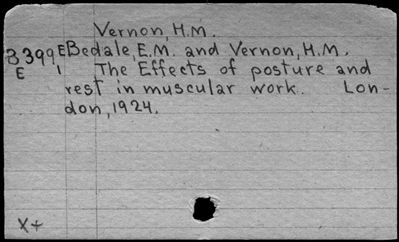 Vernon, H.M.
8399E Bedale, E.M. and Vernon, H.M.
E 1 The Effects of posture and
rest in muscular work. Lon-
don, 1924.
X+